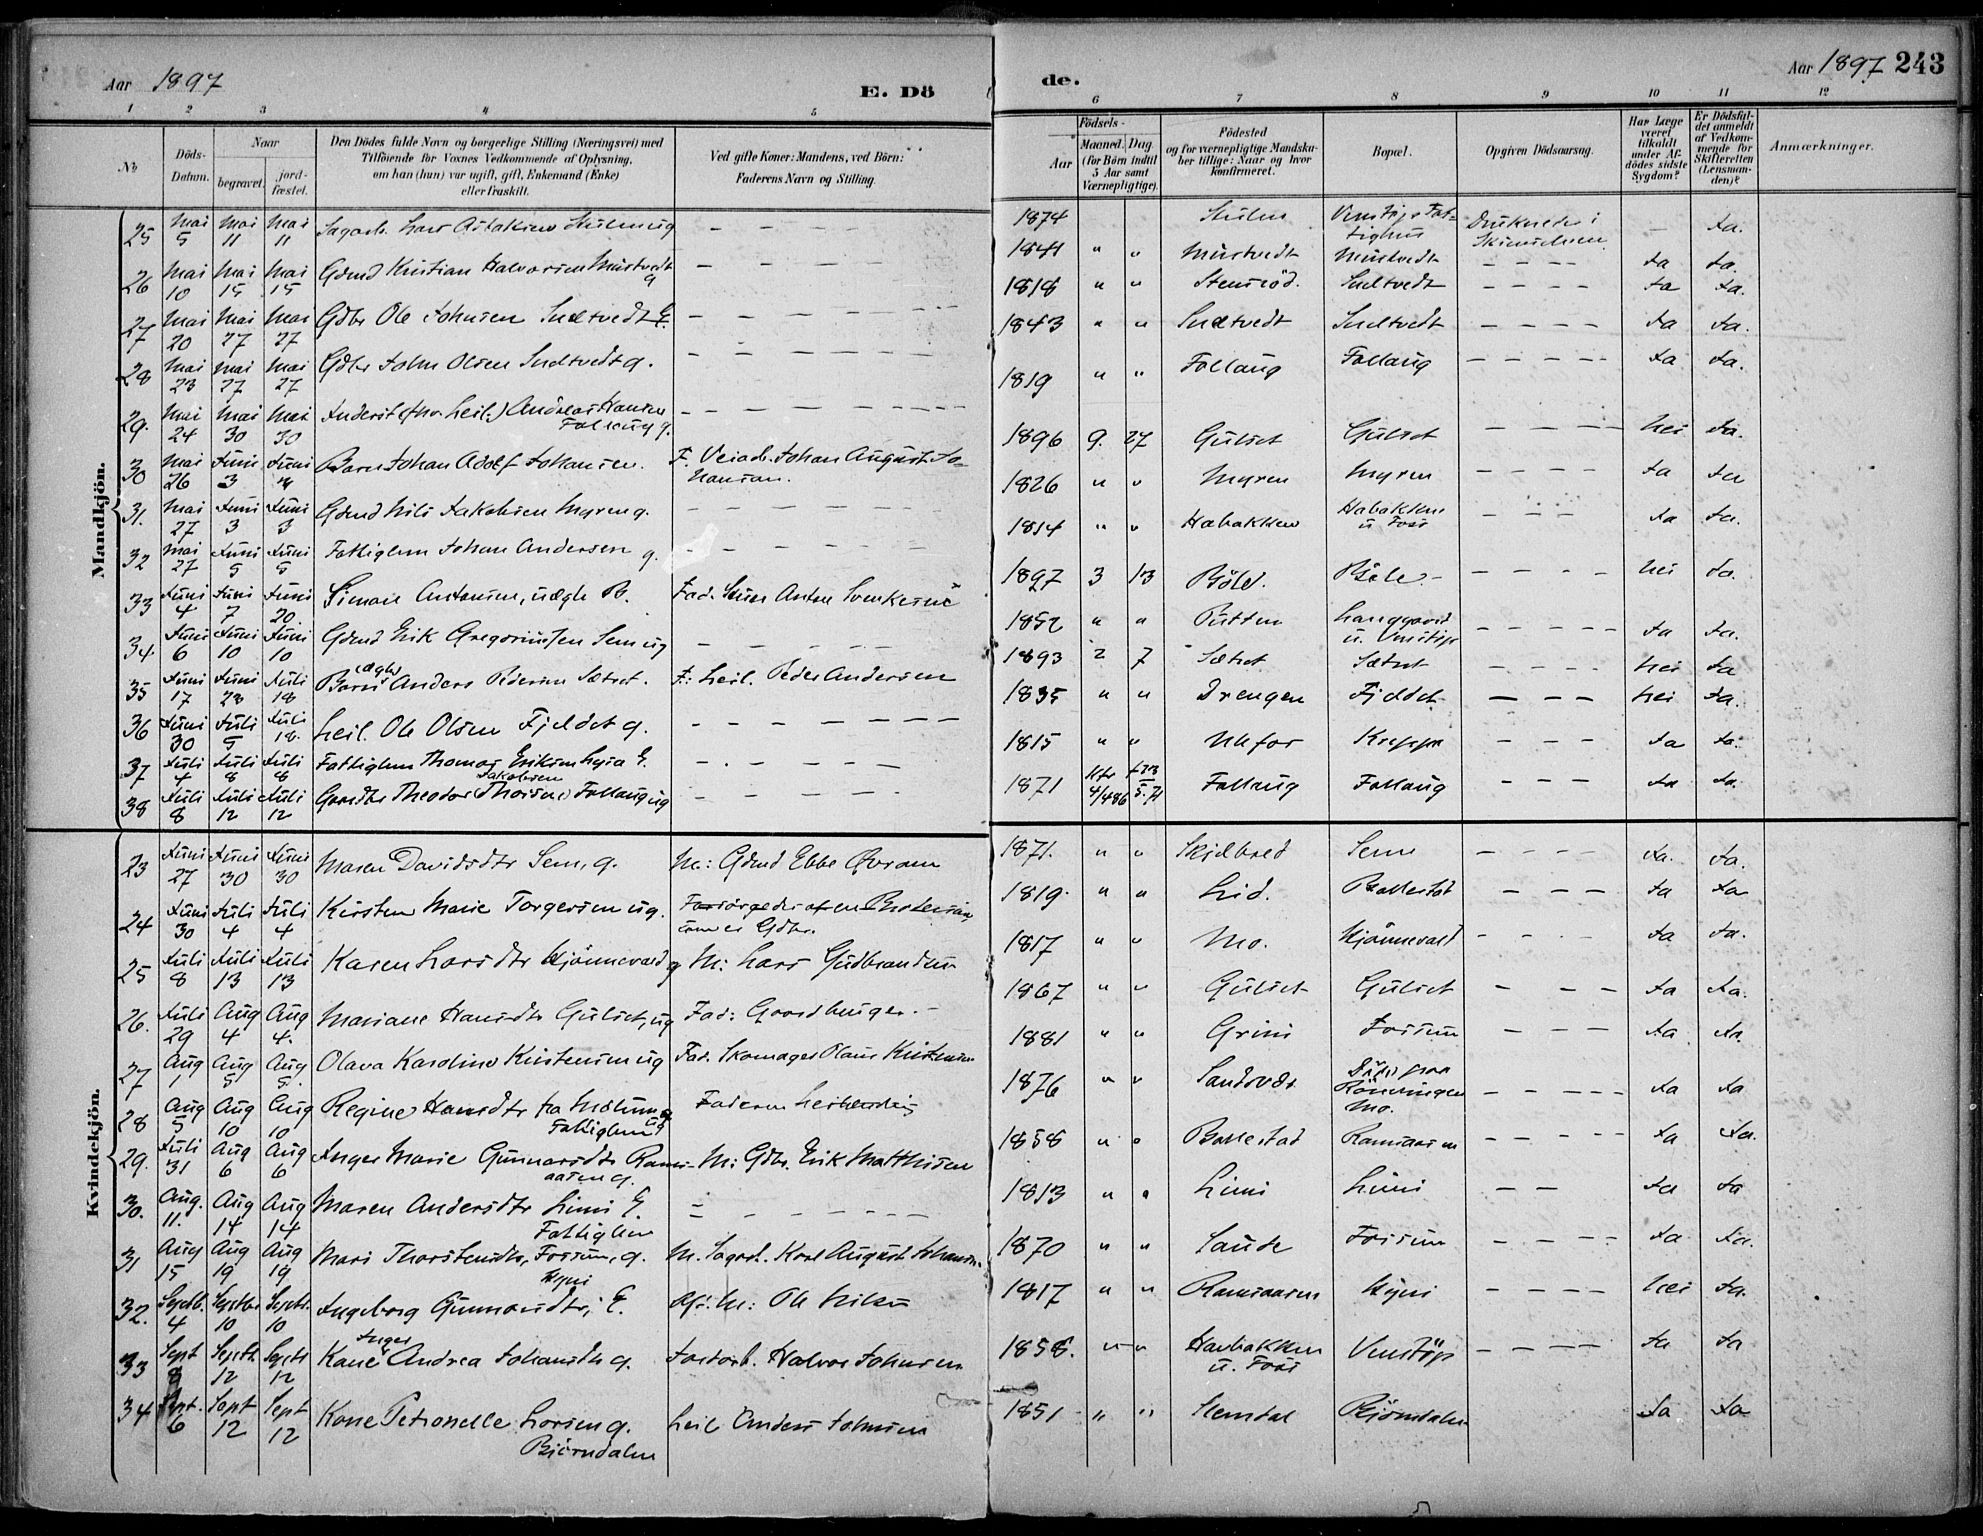 Aar 1897
E. Dö
de.
Aar 1897 243
1 2 3 4 5 6 7 8 9 10 11 12
No
Döds-
Datum.
Naar
begravet.
jord-
fæstet.
Den Dödes fulde Navn og borgerlige Stilling (Næringsvei) med
Tilföiende for Voxnes Vedkommende af Oplysning,
om han (hun) var ugift, gift, Enkemand (Enke)
eller fraskilt.
Ved gifte Koner: Mandens, ved Börn:
Faderens Navn og Stilling.
Födsels-
Aar
Maaned. Dag.
(for Börn indtil
5 Aar samt
Værnepligtige).
Födested
og for værnepligtige Mandska-
ber tillige: Naar og hvor
konfirmeret.
Bopæl.
Opgiven Dödsaarsag.
Har Læge
været
tilkaldt
under Af-
dödes sidste
Sygdom?
Er Dödsfal-
det anmeldt
af Vedkom-
mende for
Skifteretten
(Lensman-
den)?
Anmærkninger.
Mandkjön.
25 Mai 5 Mai 11 Mai 11 Lars 1874 Ja.
26 Mai 10 Mai 15 Mai 15 Gdmd Kristian Halvorsen Mustvedt g 1841 " " Mustvedt Mustvedt Ja Ja.
27 Mai 20 Mai 27 Mai 27 Gdbr Ole Johnsen Snetvedt E. 1818 " " Snetvedt Ja Ja.
28 Mai 23 Mai 27 Mai 27 Gdbr John Olsen Snetvedt g. 1843 " " Snetvedt Snetvedt Ja Ja.
29. Mai 24 Mai 30 Mai 30 Andreas Hansen Follaug g. 1819 " " Follaug Follaug Ja Ja.
30 Mai 26 Juni 3 Juni Barn Johan Adolf Johansen. F. Veiarb. Johan August Jo-
hansen. 1896 9. 27 Gulset Gulset Nei Ja.
31. Mai 27 Juni 3 Juni 3 Gdmd Nils Jakobsen Myren g. 1826 " " Myren Myren Ja Ja
32 Mai 27 Juni 5 Juni 5 Fattiglem Johan Andersen g. 1814 " " Habakken Habakken
u Foss Ja Ja.
33 Juni 4 Juni 7 Juni 20. Simon Antonsen, uægte B. Fad. Anton 1897 3 13 Böle. Böle. Nei Ja.
34. Juni 6 Juni 10 Juni 10 Gdmd Erik Gregoriussen Sem ug 1852 " " Ja Ja.
35 Juni 17 Juni 23 Juli 18 Barn (ægte) Anders Pedersen Sætret. F: Leil. Peder Andersen 1893 2 7 Sætret Sætret Nei Ja
36 Juni 30 Juli 5 Juli 18. Leil. Ole Olsen Fjeldet g. 1835 " " Drengen Fjeldet Nei Ja.
37 Juli 4 Juli 8 Juli 8 Fattiglem Thomas Eriksen E. 1815 " " Ja Ja.
38 Juli 8 Juli 12 Juli 12 Gaardbr Theodor (Thorsen) Jakobsen Follaug ug 1871 4/486 Follaug Follaug Ja Ja.
Kvindekjön.
23 Juni 27 Juni 30 Juni 30 Maren Davidsdtr Sem, g. M: Gdmd Ebbe 1871. " " Skjelbred Sem Ja. Ja.
24 Juni 30 Juli 4 Juli 4 Kirsten Marie Torgersen ug. Forsörgedes af en Brodersön,
som er Gdbr. 1819. " " Lid. Ballestad Ja Ja
25 Juli 8 Juli 13 Juli 13 Karen Larsdtr Hjönnevald g M: Lars Gudbrandsen 1817 " " Mo. Hjönnevald Ja Ja.
26. Juli 29 Aug 4 Aug 4. Mariane Hansdtr Gulset, ug Fad: Gaardbruger. 1867 " " Gulset Gulset Ja Ja.
27 Aug 1 Aug 5 Aug 5. Olava Karoline Kristensen ug Fad. Skomager Olaus Kristensen 1881 " " Grini Fossum Ja. Ja.
28 Aug 5 Aug 10 Aug 10 Regine Hansdtr fra Melum ug
Fattiglem Faderen 1876 " " Döde paa
Mo. Ja Ja
29. Juli 31 Aug 6 Aug 6 Inger Marie Gunnarsdtr Rams-
aasen g. M: Gdbr. Erik Matthisen 1858 " " Ballestad Ramsaasen Ja Ja.
30. Aug. 11. Aug 14 Aug 14 Maren Andersdtr Limi E.
Fattiglem 1813 " " Limi Limi Ja Ja
31 Aug 15 Aug 19 Aug 19 Mari Thorstensdtr, Fossum, g. M. Sagarb. Karl August Johansen. 1870 " " Saude Fossum Ja Ja.
32. Septb. 4 Septbr 10 Septbr. 10 Ingeborg Gunnarsdtr, Hyni E. Afd. M: Ole Nilsen 1817 " " Ramsaasen Hyni Nei Ja.
33 Sept 8 Septb 12 Septb 12 Kone Inger Andrea Johansdtr g. Jordarb. Halvor Johnsen 1858. " " Havbakken
u. Foss Venstöp Ja Ja
34 Sept. 6 Sept 12 Sept 12 Kone Petronelle Larsen g.
Björndalen Leil Anders Johnsen 1851 " " Stemdal Björndalen Ja Ja